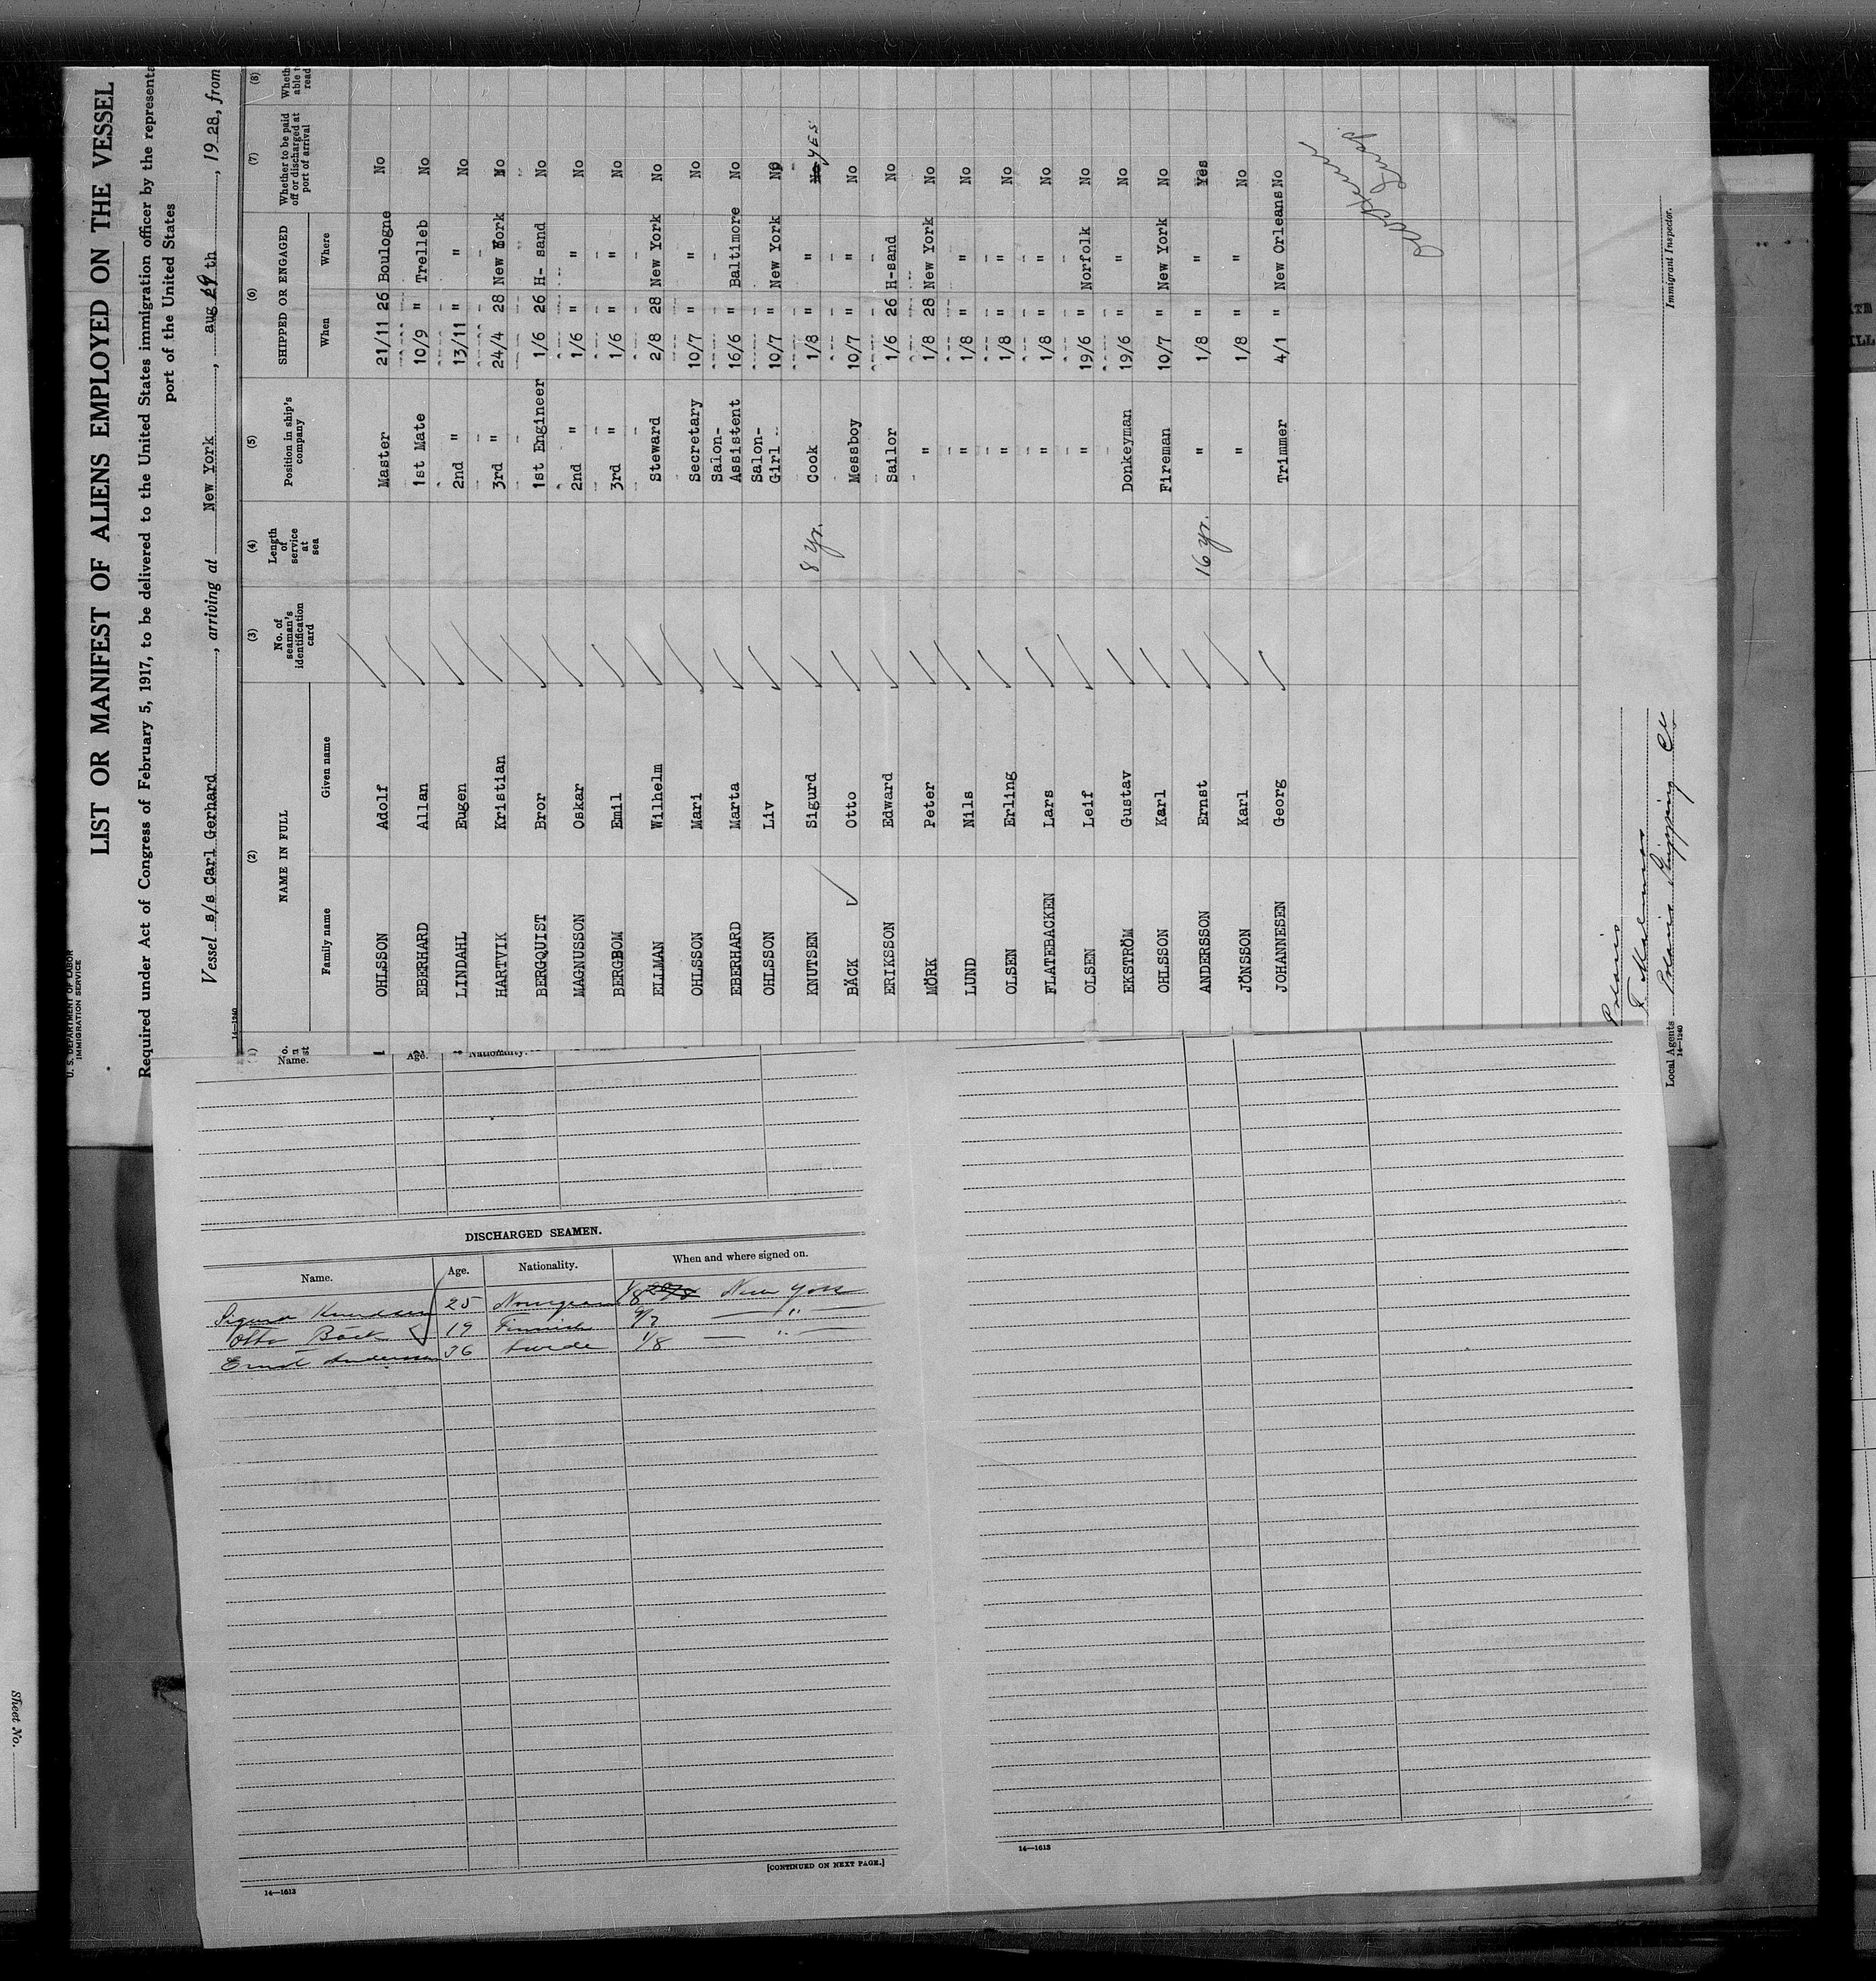 U. S. DEPARTMENT OF LABOR
IMMIGRATION SERVICE
LIST OR MANIFEST OF ALIENS EMPLOYED ON THE VESSEL
Required under Act of Congress of February 5, 1917, to be delivered to the United States immigration officer by the representa
port of the United States
Vessel s/s Carl Gerhard, arriving at New York, aug 29 th, 1928, from
14—1240
(2) (3) (4) (5) (6) (7) (8)
NAME IN FULL No. of seaman's identification card Length of service at sea Position in ship's company SHIPPED OR ENGAGED Whether to be paid off or discharged at port of arrival
Family name Given name When Where
OHLSSON Adolf Master 21/11 26 Boulogne No
EBERHARD Allan 1st Mate 10/9 " Trelleb No
LINDAHL Eugen 2nd " 13/11 " " No
HARTVIK Kristian 3rd " 24/4 28 New York No
BERGQUIST Bror 1st Engineer 1/6 26 H- sand No
MAGNUSSON Oskar 2nd " 1/6 " " No
BERGBOM Emil 3rd " 1/6 " " No
ELLMAN Wilhelm Steward 2/8 28 New York No
OHLSSON Mari Secretary 10/7 " " No
EBERHARD Marta Salon-Assistent 16/6 " Baltimore No
OHLSSON Liv Salon-Girl 10/7 " New York No
KNUTSEN Sigurd 8 yr. Cook 1/8 " " No YES
BÄCK Otto Messboy 10/7 " " No
ERIKSSON Edward Sailor 1/6 26 H-sand No
MÖRK Peter " 1/8 28 New York No
LUND Nils " 1/8 " " No
OLSEN Erling " 1/8 " " No
FLATEBACKEN Lars " 1/8 " " No
OLSEN Leif " 19/6 " Norfolk No
EKSTRÖM Gustav Donkeyman 19/6 " " No
OHLSSON Karl Fireman 10/7 " New York No
ANDERSSON Ernst 16 yr. " 1/8 " " Yes
JÖNSSON Karl " 1/8 " " No
JOHANNESEN Georg Trimmer 4/1 " New Orleans No
Immigrant Inspector.
Local Agents Polaris Shipping Co
14—1240
Name. Age. Nationality.
DISCHARGED SEAMEN.
Name. Age. Nationality. When and where signed on.
Sigurd Knudsen 25 Norwegian 1/8 New York
Otto Bäck 19 Finnish 9/7 — " —
Ernst Andersson 36 Swede 1/8 — " —
[CONTINUED ON NEXT PAGE.]
14—1613
14—1613
Sheet No.